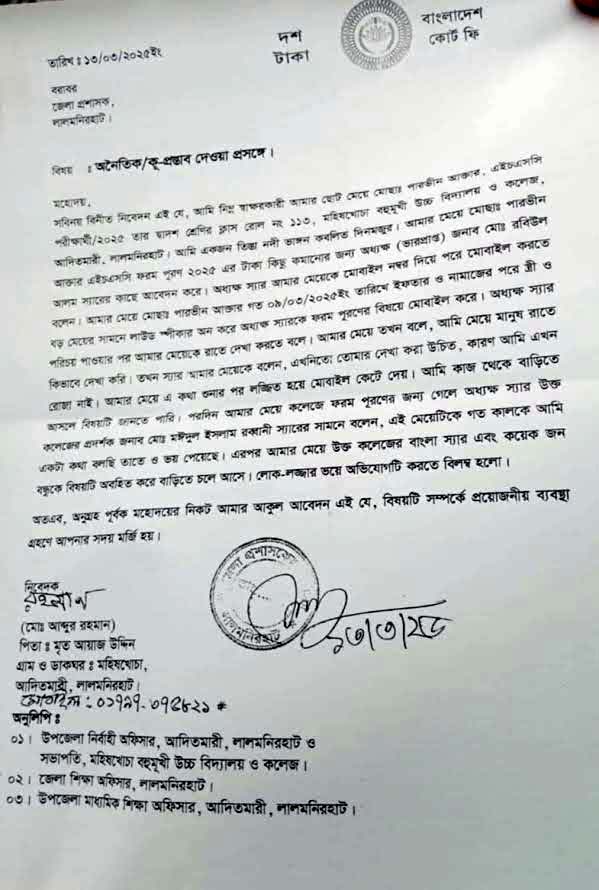 দশ
টাকা
বাংলাদেশ
কোর্ট ফি
তারিখ ঃ ১৩/০৩/২০২৫ইং
বরাবর
জেলা প্রশাসক,
লালমনিরহাট।
বিষয় ঃ অনৈতিক/কু-প্রস্তাব দেওয়া প্রসঙ্গে।
মহোদয়,
সবিনয় বিনীত নিবেদন এই যে, আমি নিম্ন স্বাক্ষরকারী আমার ছোট মেয়ে মোছাঃ পারভীন আক্তার, এইচএসসি
পরীক্ষার্থী/২০২৫ তার দ্বাদশ শ্রেণির ক্লাস রোল নং ১১৩, মহিষখোচা বহুমূখী উচ্চ বিদ্যালয় ও কলেজ,
আদিতমারী, লালমনিরহাট। আমি একজন তিস্তা নদী ভাঙ্গন কবলিত দিনমজুর। আমার মেয়ে মোছাঃ পারভীন
আক্তার এইচএসসি ফরম পূরণ ২০২৫ এর টাকা কিছু কমানোর জন্য অধ্যক্ষ (ভারপ্রাপ্ত) জনাব মোঃ রবিউল
আলম স্যারের কাছে আবেদন করে। অধ্যক্ষ স্যার আমার মেয়েকে মোবাইল নম্বর দিয়ে পরে মোবাইল করতে
বলেন। আমার মেয়ে মোছাঃ পারভীন আক্তার গত ০৯/০৩/২০২৫ইং তারিখে ইফতার ও নামাজের পরে স্ত্রী ও
বড় মেয়ের সামনে লাউড স্পীকার অন করে অধ্যক্ষ স্যারকে ফরম পূরণের বিষয়ে মোবাইল করে। অধ্যক্ষ স্যার
পরিচয় পাওয়ার পর আমার মেয়েকে রাতে দেখা করতে বলে। আমার মেয়ে তখন বলে, আমি মেয়ে মানুষ রাতে
কিভাবে দেখা করি। তখন স্যার আমার মেয়েকে বলেন, এখনিতো তোমার দেখা করা উচিত, কারণ আমি এখন
রোজা নাই। আমার মেয়ে এ কথা শুনার পর লজ্জিত হয়ে মোবাইল কেটে দেয়। আমি কাজ থেকে বাড়িতে
আসলে বিষয়টি জানতে পারি। পরদিন আমার মেয়ে কলেজে ফরম পূরণের জন্য গেলে অধ্যক্ষ স্যার উক্ত
কলেজের প্রদর্শক জনাব মোঃ মঈদুল ইসলাম রব্বানী স্যারের সামনে বলেন, এই মেয়েটিকে গত কালকে আমি
একটা কথা বলছি তাতে ও ভয় পেয়েছে। এরপর আমার মেয়ে উক্ত কলেজের বাংলা স্যার এবং কয়েক জন
বন্ধুকে বিষয়টি অবহিত করে বাড়িতে চলে আসে। লোক-লজ্জার ভয়ে অভিযোগটি করতে বিলম্ব হলো।
অতএব, অনুগ্রহ পূর্বক মহোদয়ের নিকট আমার আকুল আবেদন এই যে, বিষয়টি সম্পর্কে প্রয়োজনীয় ব্যবস্থা
গ্রহণে আপনার সদয় মর্জি হয়।
নিবেদক
(মোঃ আব্দুর রহমান)
পিতা ঃ মৃত আয়াজ উদ্দিন
গ্রাম ও ডাকঘর ঃ মহিষখোচা,
আদিতমারী, লালমনিরহাট।
লালমনিরহাট
অনুলিপি ঃ
০১। উপজেলা নির্বাহী অফিসার, আদিতমারী, লালমনিরহাট ও
সভাপতি, মহিষখোচা বহুমূখী উচ্চ বিদ্যালয় ও কলেজ।
০২। জেলা শিক্ষা অফিসার, লালমনিরহাট।
০৩। উপজেলা মাধ্যমিক শিক্ষা অফিসার, আদিতমারী, লালমনিরহাট।